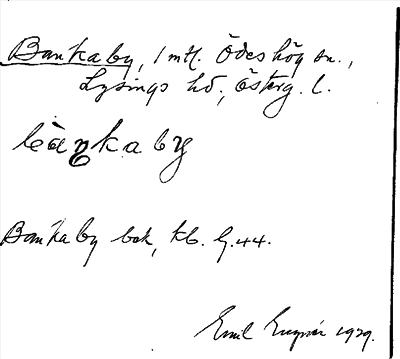 Bankaby, 1 mtl. Ödeshög sn.,
Lysings hd., Österg. l.
bàŋkaby
Bankaby bok, kb. G.44.
Emil 1929.